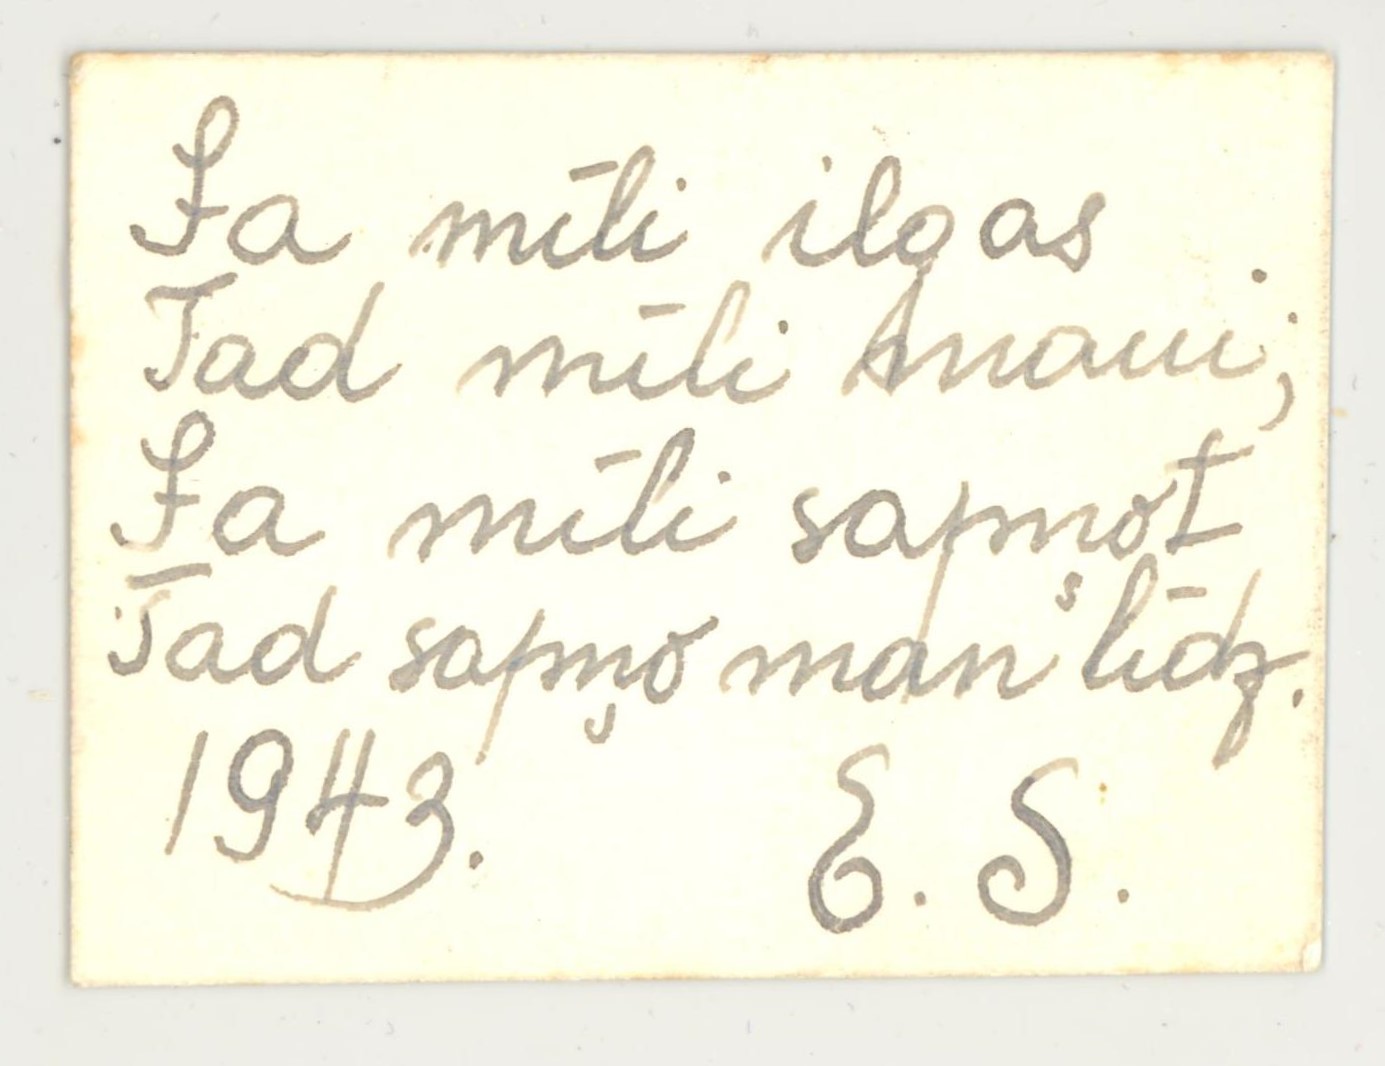 Ja mīli ilgas
Tad mīli mani;
Ja mīli sapņot
Tad sapņo man's līdz.
1943. E. S.